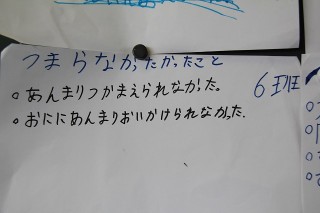 つまらなかったかったこと
6班
。あんまりつかまえられなかった。
。おににあんまりおいかけられなかった.